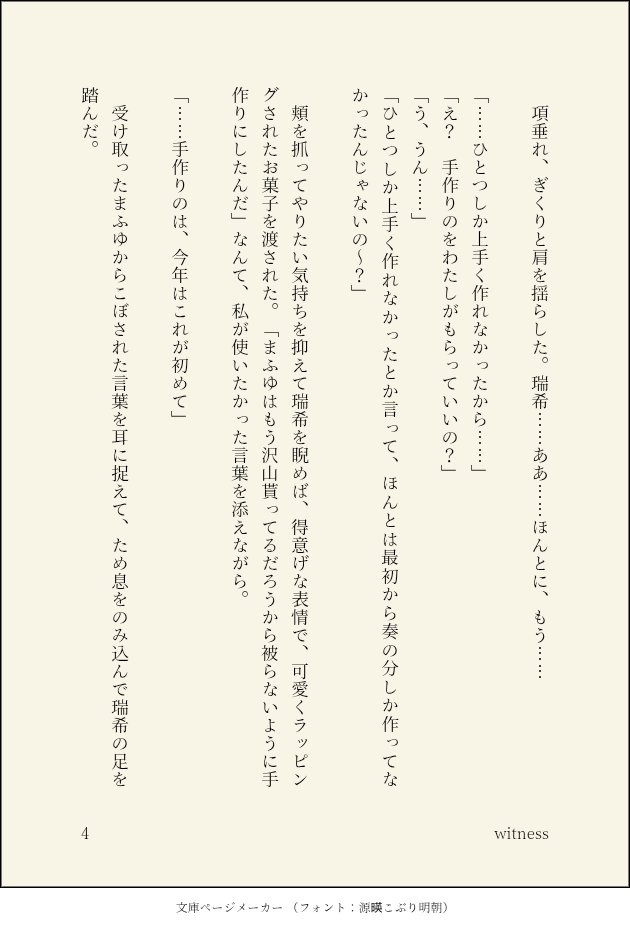 項垂れ、ぎくりと肩を揺らした。瑞希……ああ……ほんとに、もう……
「……ひとつしか上手く作れなかったから……」
「え？　手作りのをわたしがもらっていいの？」
「う、うん……」
「ひとつしか上手く作れなかったとか言って、ほんとは最初から奏の分しか作ってな
かったんじゃないの～？」
頬を抓ってやりたい気持ちを抑えて瑞希を睨めば、得意げな表情で、可愛くラッピン
グされたお菓子を渡された。「まふゆはもう沢山貰ってるだろうから被らないように手
作りにしたんだ」なんて、私が使いたかった言葉を添えながら。
「……手作りのは、今年はこれが初めて」
受け取ったまふゆからこぼされた言葉を耳に捉えて、ため息をのみ込んで瑞希の足を
踏んだ。
witness
4
文庫ページメーカー （フォント：源暎こぶり明朝）